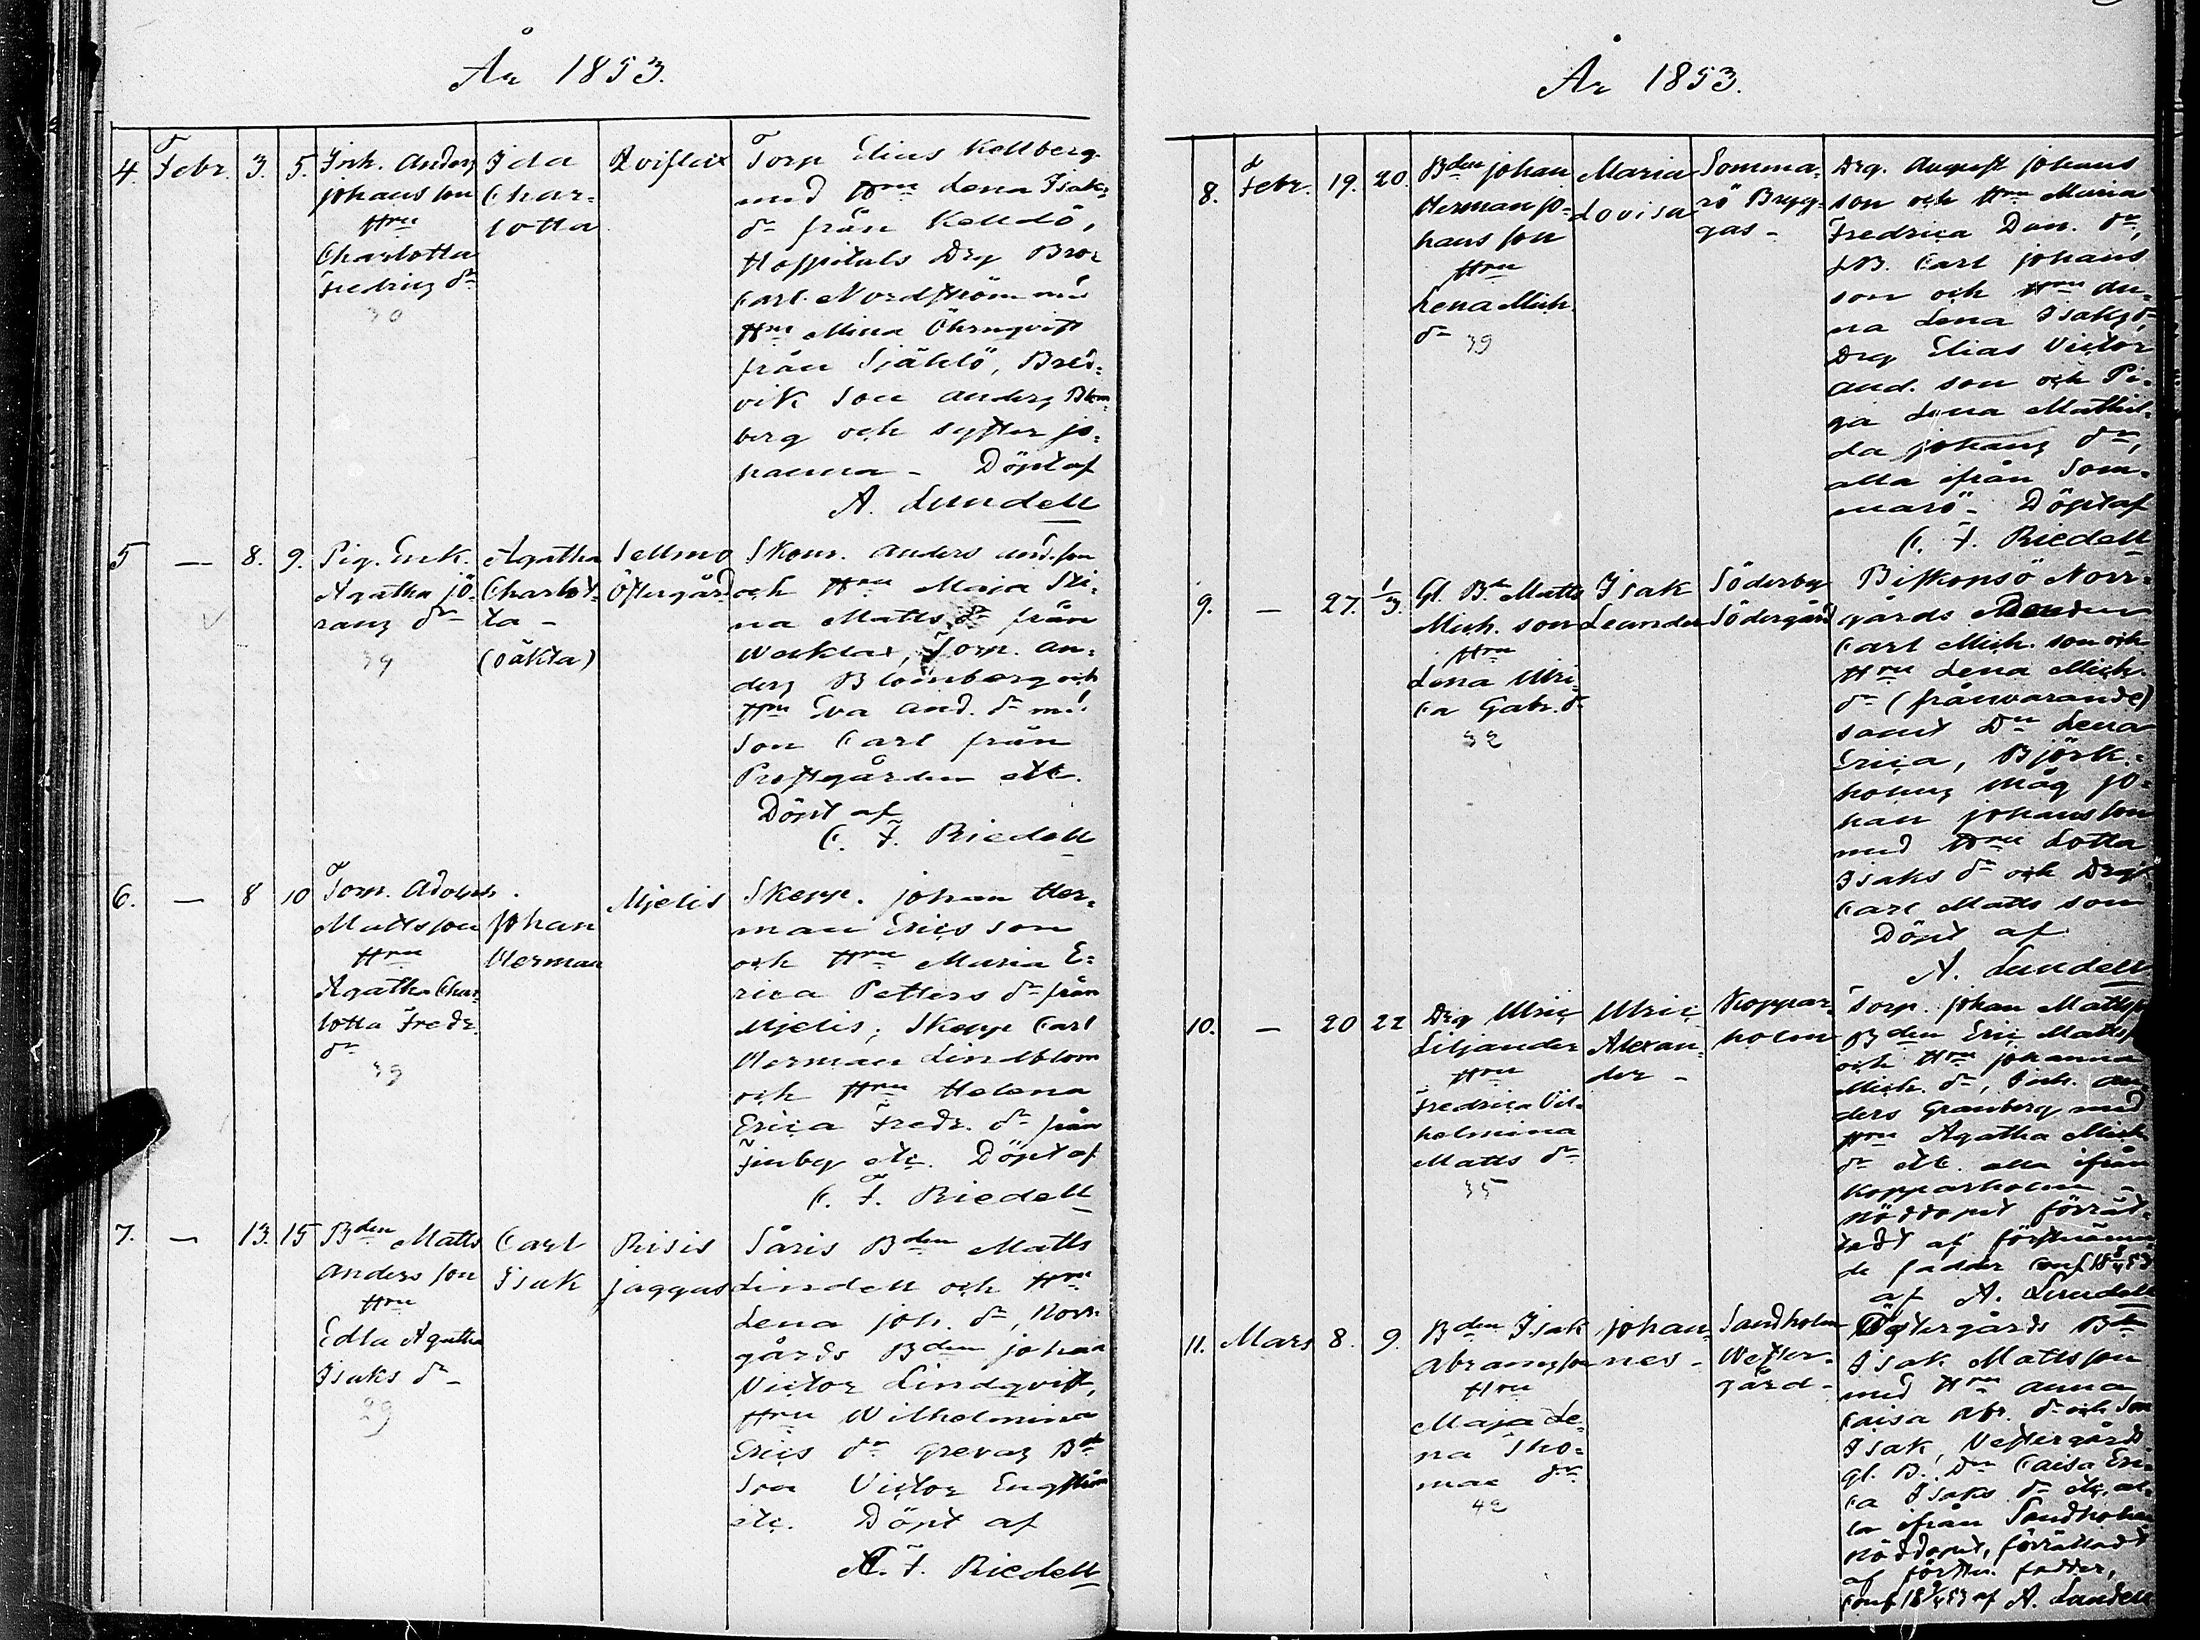 År 1853.
4. Febr. 3. 5. Inh. Anders
Johansson
Hru
Charlotta
Fredrics dr
30
Ida
Char-
lotta
Qviflax
Torp Elias Kellberg
med Hru Lena Isaks
dr från Kelldö,
Hospitals Drg Bror
Carl Nordström med
Hru Mina Öhrnqvist
från Själö, Bred-
vik Son Anders Blom-
berg och syster Jo-
hanna - Döpt af
A. Lundell
5 — 8. 9. Pig. Enk.
Agatha Jö-
rans dr
39
Agatha
Charlot-
ta -
(oäkta)
Sellmo
Östergård
Skom. Anders And.son
och Hru Maja Sti-
na Matts dr från
Worklax, Torp. An-
ders Blomberg och
Hru Eva And. dr med
Son Carl från
Prostgården etc.
Döpt af
C. F. Riedell
6. — 8 10 Torp. Adolph
Mattsson
Hru
Agatha Char-
lotta Fredr.
dr
39
Johan
Herman
Mjelis
Skepp. Johan Her-
man Ericsson
och Hru Maria E-
rica Petters dr från
Mjelis, Skepp Carl
Herman Lindblom
och Hru Helena
Erica Fredr. dr från
Finby etc. Döpt af
C. F. Riedell
7. — 13. 15 Bden Matts
Andersson
Hru
Edla Agatha
Isaks dr -
29
Carl
Isak
Risis
Jaggas
Såris Bden Matts
Lindell och Hru
Lena Joh. dr, Norr-
gårds Bden Johan
Victor Lindqvist,
Hru Wilhelmina
Erics dr Grevas Bde
Son Victor Engström
etc. Döpt af
C. F. Riedell
År 1853.
8. Febr. 19. 20. Bden Johan
Herman Jo-
hansson
Hru
Lena Mich.
dr 39
Maria
Lovisa
Somma-
rö Brygg-
gas -
Drg. August Johans
son och Hru Maria
Fredrica Dan. dr,
JB. Carl Johans
son och Hru An-
na Lena Isaks dr
Drg Elias Victor
And. son och Pi-
ga Lena Mathil-
da Johans dr,
alla ifrån Som-
marö - Döpt af
C. F. Riedell
9. — 27. 1/3. Gl. Bd Matts
Mich. son
Hru
Lena Ulri-
ca Gabr. dr
32
Isak
Leander
Söderby
Södergård
Biskopsö Norr-
gårds Bonden
Carl Mich. son och
Hru Lena Mich.
dr (frånvarande)
samt Drn Lena
Erica, Björk-
holms Måg Jo-
han Johansson
med Hru Lotta
Isaks dr och Drg
Carl Matts son
Döpt af
A. Lundell
10. — 20 22 Drg Ulric
Liljander
Hru
Fredrica Vil-
helmina
Matts dr
35
Ulric
Alexan-
der -
Koppar-
holm
Torp. Johan Mattss
Bden Eric Mattss
och Hru Johanna
Mich. dr, Inh. An-
ders Granberg med
Hru Agatha Mich
dr etc. alla ifrån
Kopparholm -
Nöddopet förrät-
tadt af förstnämn-
de fadder
af A. Lundell
11. Mars 8. 9. Bden Isak
Abramsson
Hru
Maja Le-
na Tho-
mae dr
42
Johan-
nes -
Sandholm
Wester-
gård -
Östergårds Bde
Isak Mattsson
med Hru Anna
Caisa Abr. dr och Son
Isak, Vestergårds
gl. B. Drn Caisa Eri-
ca Isaks dr etc. al-
la ifrån Sandholm
Nöddopet, förrättadt
af förstn. fadder,
af A. Lundell